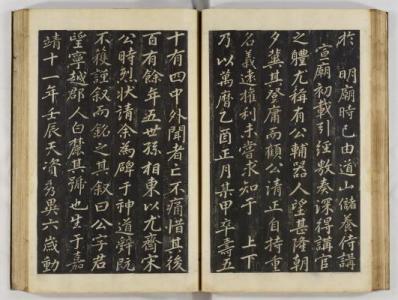 於 明廟時已由道山儲養侍講
宣廟初載引經敷奏深得講官
之體尤稱有公輔器人望甚隆朝
夕冀其登庸而顧公清正自持重
名義遠權利未嘗求知于 上下
乃以萬曆乙酉正月某甲卒壽五
十有四中外聞者亡不痛惜其後
百有餘年五世孫相東以尤齋宋
公時烈狀請余為碑于神道辭既
不獲謹叙而銘之其叙曰公字君
望寧越郡人白麓其號也生于嘉
靖十一年壬辰天資秀異六歲動